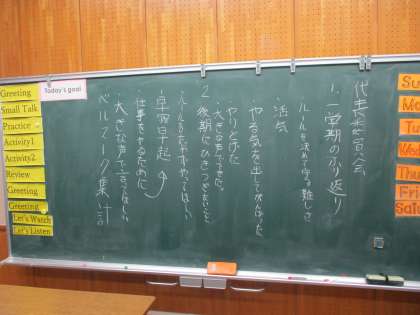 Greeting
Small Talk
Practice
Activity1
Activity2
Review
Greeting
Greeting
Let's Watch
Let's Listen
Today's goal
代表委員会
1. 一学期のふり返り
ルールを決めて守る難しさ
・活気
やる気を出してがんばった
やりとげた
・大きな声でできた。
2 後期にひきつぎたいこと
卓球早起
仕事をするために
・大きな声で言ってほしい
ベルマーク集計
Su
Mo
Tu
Wed
Thu
Fri
Sat